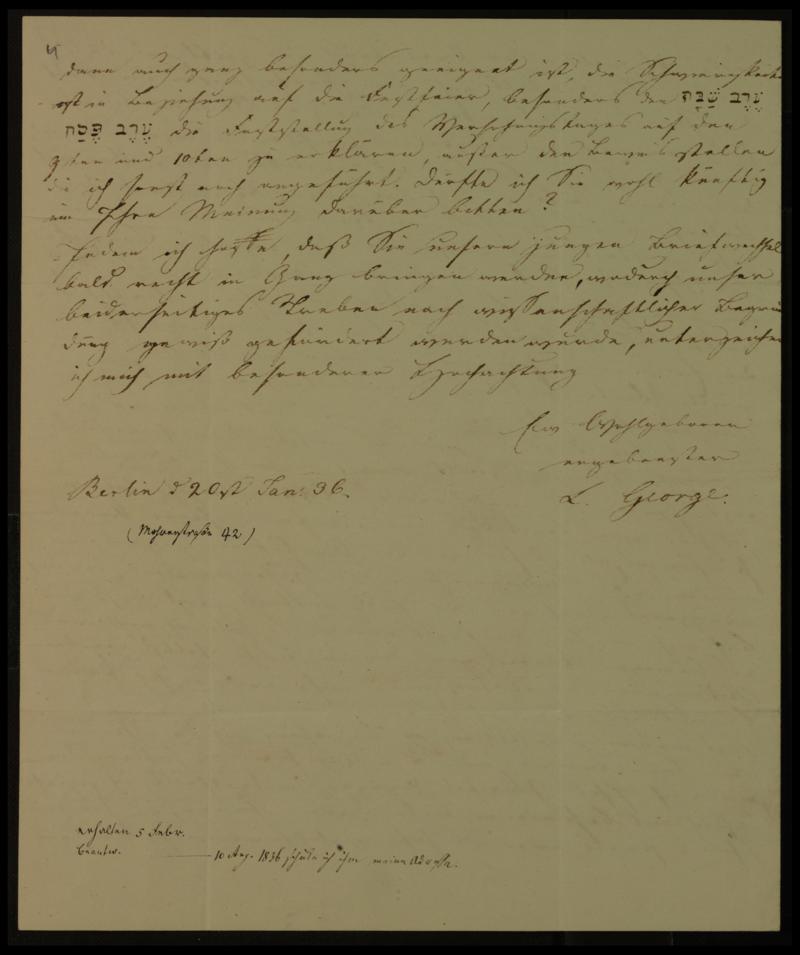 4
dann auch ganz besonders geeignet ist, die Schwierigkeiten
ist in Beziehung auf die Festfeier, besonders den עֶרֶב שַׁבָּת
עֶרֶב פֶּסַח die Feststellung des Versöhnungstages auf den
9ten und 10ten zu erklären, außer den Beweisstellen
die ich sonst noch angeführt. Dürfte ich Sie wohl künftig
um Ihre Meinung darüber bitten?
Indem ich hoffe, daß Sie unsern jungen Briefwechsel
bald recht in Gang bringen werden, wodurch unser
beiderseitiges Streben nach wissenschaftlicher Begrün
dung gewiß gefördert werden würde, unterzeichne
ich mich mit besonderer Hochachtung
Ew Wohlgeboren
ergebenster
L. George.
Berlin d 20st Jan. 36.
(Mohrenstraße 42)
erhalten 5 Febr.
beantw. 10 Aug. 1836 schickte ich ihm meine Adresse.